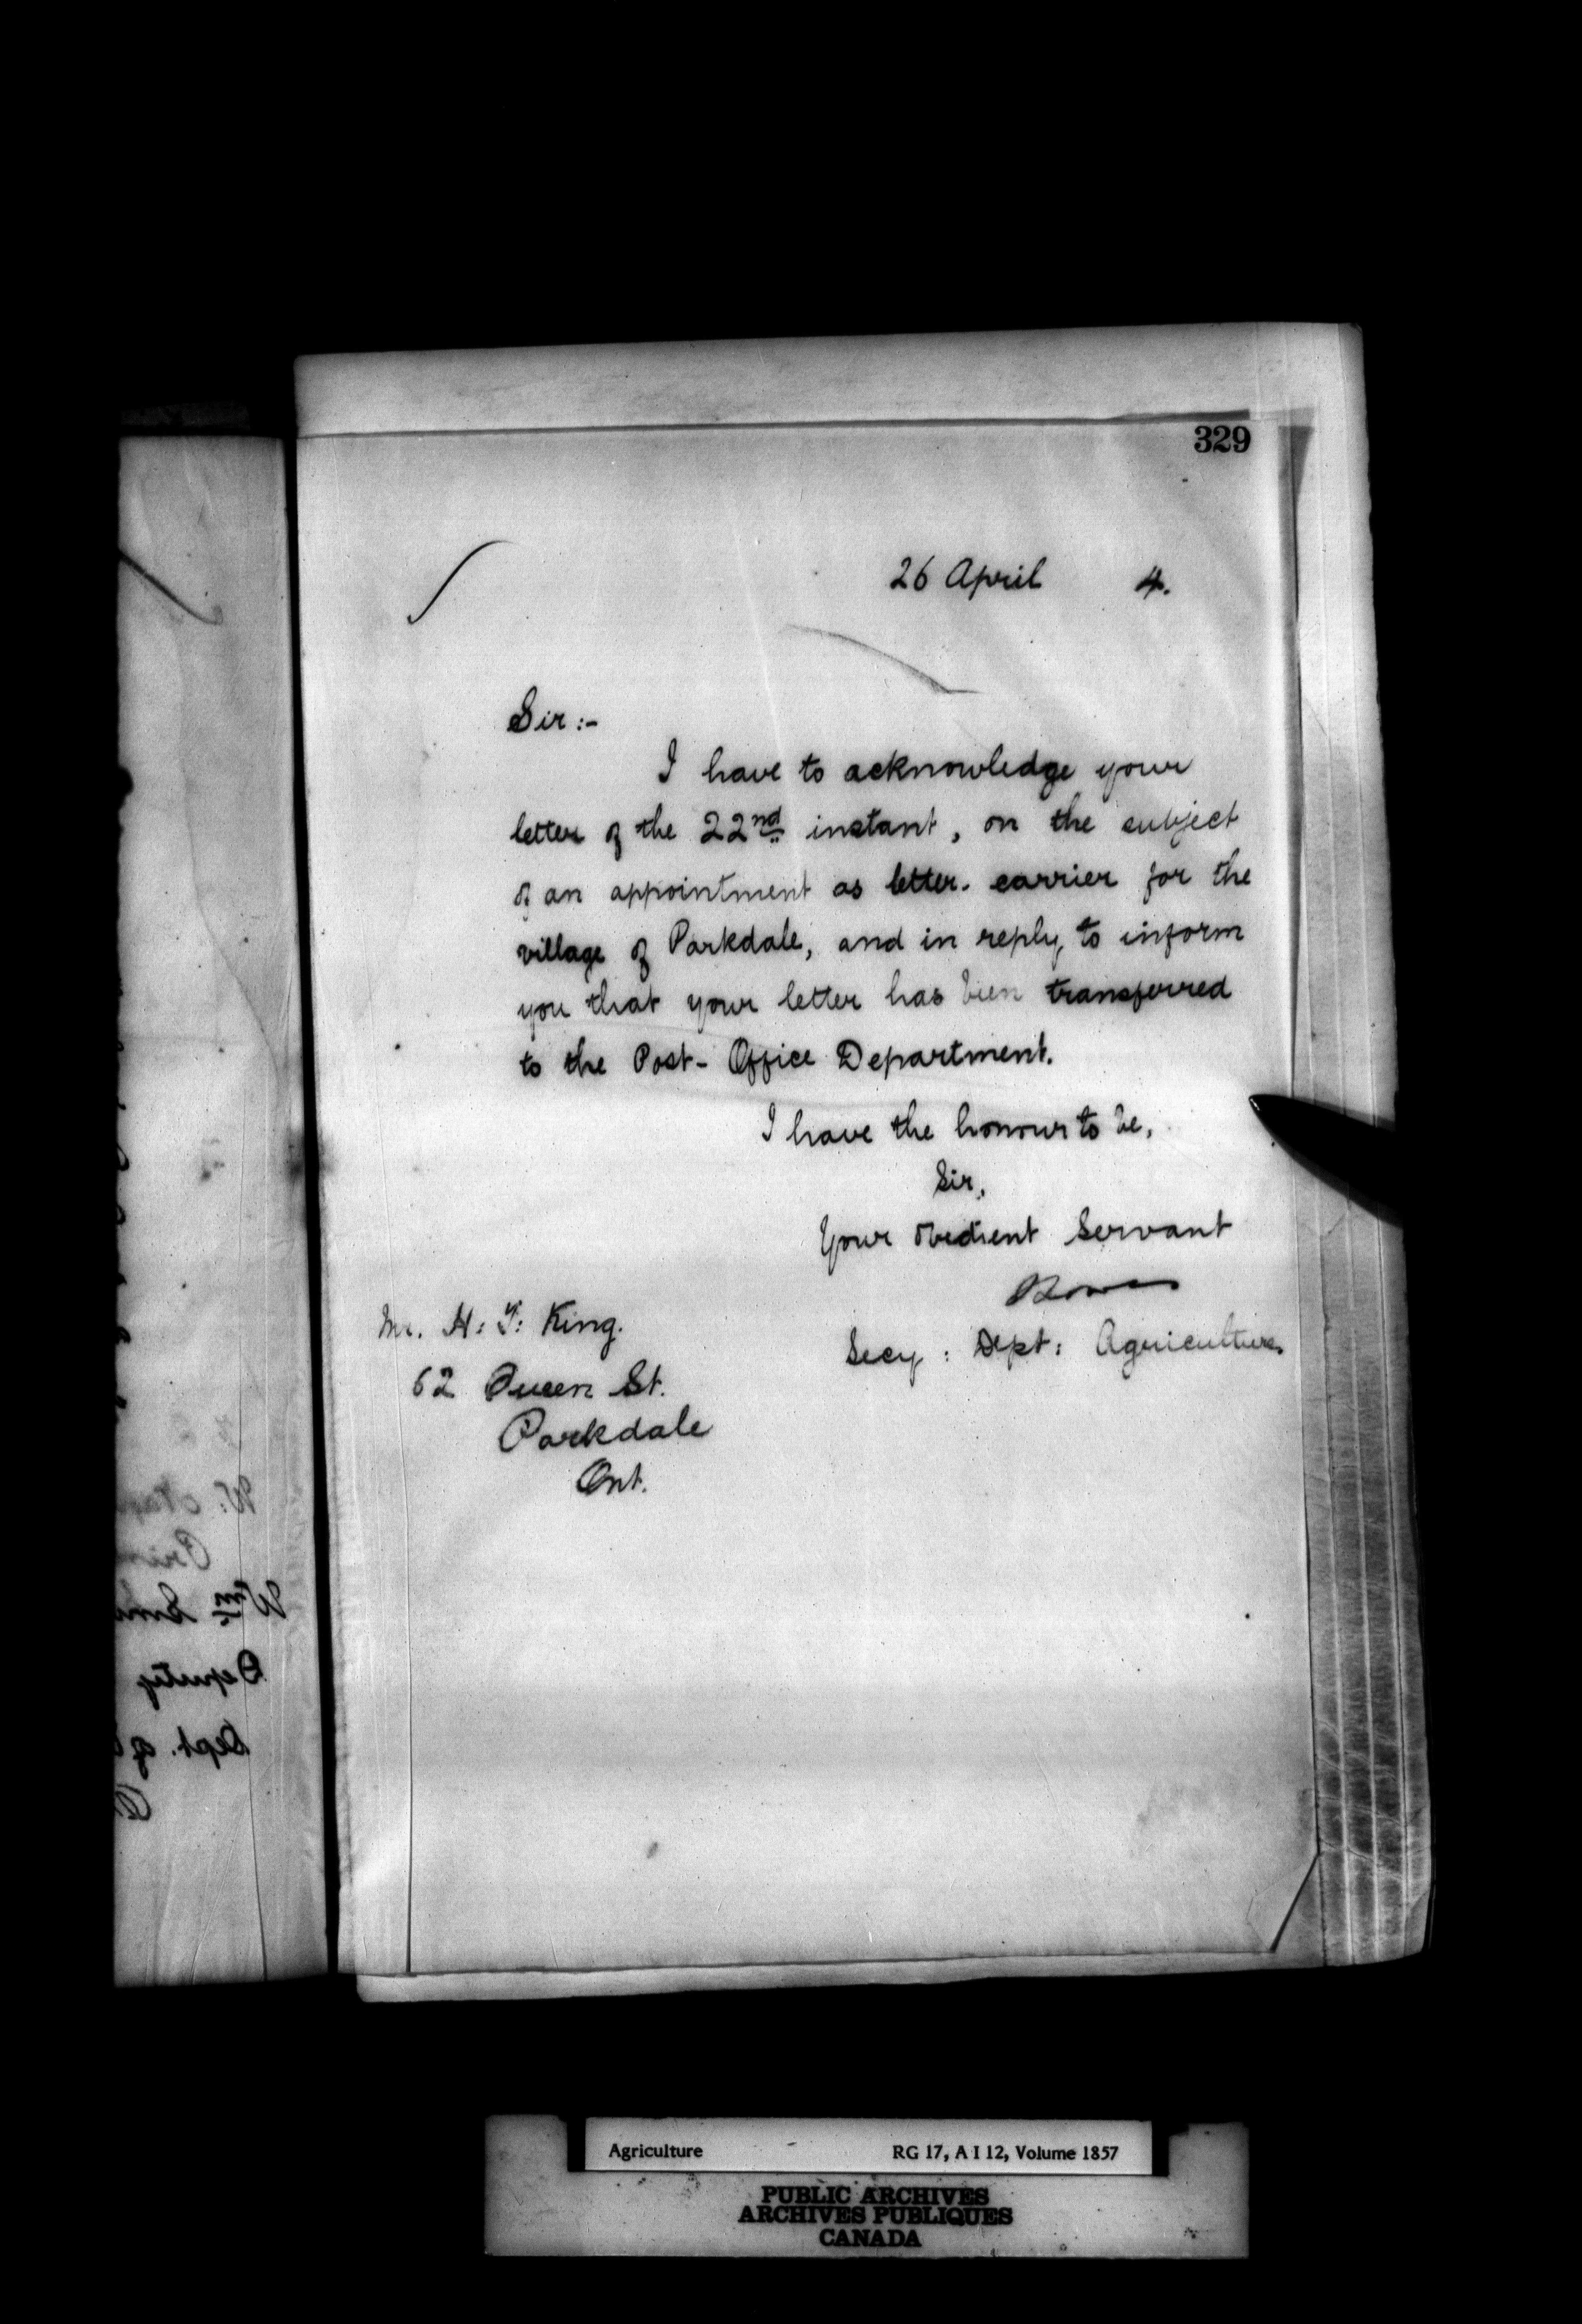 329
26 April 4.
Sir:-
I have to acknowledge your
letter of the 22nd instant, on the subject
of an appointment as letter-carrier for the
village of Parkdale, and in reply, to inform
you that your letter has been transferred
to the Post-Office Department.
I have the honour to be,
Sir,
Your obedient Servant
Secy: Dept: Agriculture.
Mr. H: King.
62 Queen St.
Parkdale
Ont.
Wm
Deputy
Dept. of
Agriculture RG 17, A I 12, Volume 1857
PUBLIC ARCHIVES
ARCHIVES PUBLIQUES
CANADA